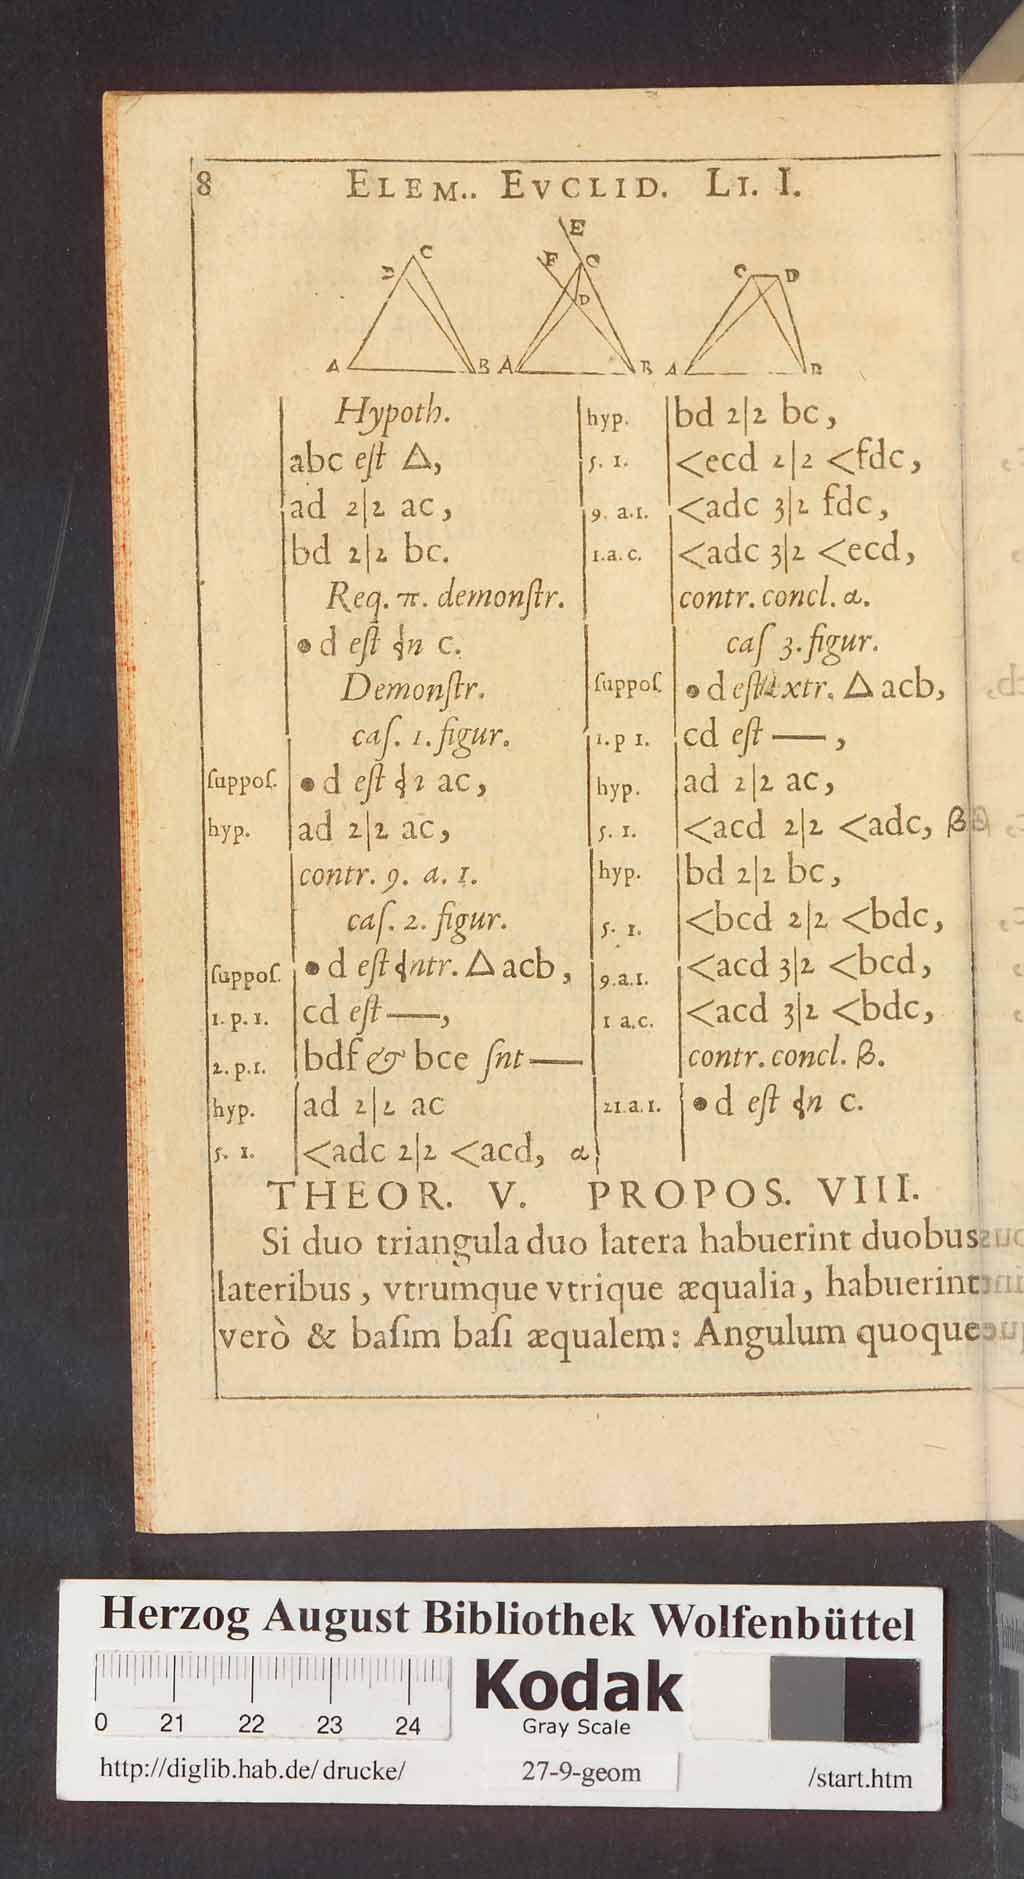 8 ELEM.. EVCLID. LI. I.
E
C F C C D
D
A B A B A B
Hypoth.
abc eſt △,
ad 2|2 ac,
bd 2|2 bc.
Req. π. demonſtr.
• d eſt in c.
Demonſtr.
caſ. 1. figur.
ſuppoſ. • d eſt in ac,
hyp. ad 2|2 ac,
contr. 9. a. 1.
caſ. 2. figur.
ſuppoſ. • d eſt intr. △ acb,
1. p. 1. cd eſt —,
2. p. 1. bdf & bce ſnt —
hyp. ad 2|2 ac
5. 1. <adc 2|2 <acd, α
hyp. bd 2|2 bc,
5. 1. <ecd 2|2 <fdc,
9. a. 1. <adc 3|2 fdc,
1. a. c. <adc 3|2 <ecd,
contr. concl. α.
caſ 3. figur.
ſuppoſ. • d eſt extr. △ acb,
1. p 1. cd eſt —,
hyp. ad 2|2 ac,
5. 1. <acd 2|2 <adc, β
hyp. bd 2|2 bc,
5. 1. <bcd 2|2 <bdc,
9. a. 1. <acd 3|2 <bcd,
1 a. c. <acd 3|2 <bdc,
contr. concl. β.
21. a. 1. • d eſt in c.
THEOR. V. PROPOS. VIII.
Si duo triangula duo latera habuerint duobus
lateribus, vtrumque vtrique æqualia, habuerint
verò & baſim baſi æqualem: Angulum quoque
Herzog August Bibliothek Wolfenbüttel
0 21 22 23 24
Kodak
Gray Scale
http://diglib.hab.de/drucke/ 27-9-geom /start.htm